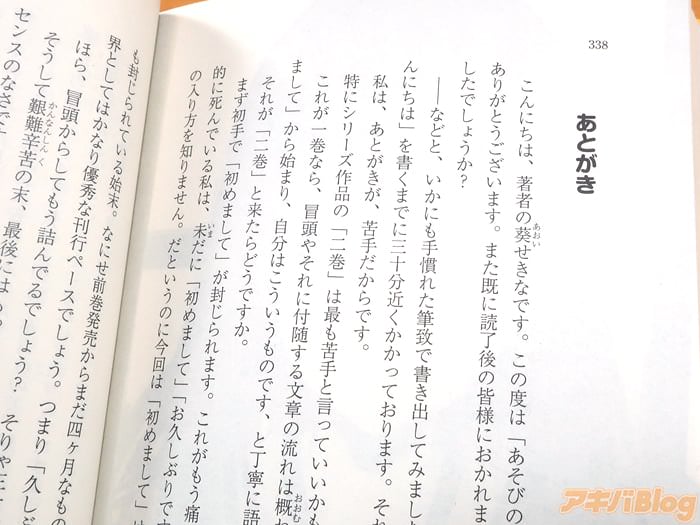 338
あとがき
こんにちは、著者の葵せきなです。この度は「あそびの
ありがとうございます。また既に読了後の皆様におかれま
したでしょうか?
――などと、いかにも手慣れた筆致で書き出してみまし
んにちは」を書くまでに三十分近くかかっております。それ
私は、あとがきが、苦手だからです。
特にシリーズ作品の「二巻」は最も苦手と言っていいかも
これが一巻なら、冒頭やそれに付随する文章の流れは概ね
まして」から始まり、自分はこういうものです、と丁寧に語
それが「二巻」と来たらどうですか。
まず初手で「初めまして」が封じられます。これがもう痛
的に死んでいる私は、未だに「初めまして」「お久しぶりです
の入り方を知りません。だというのに今回は「初めまして」は
も封じられている始末。なにせ前巻発売からまだ四ヶ月なもの
界としてはかなり優秀な刊行ペースでしょう。つまり「久しぶ
ほら、冒頭からしてもう詰んでるでしょう?
そうして艱難辛苦の末、最後には
センスのなさで
あおい
おおむ
いま
かんなんしんく
アキバBlog